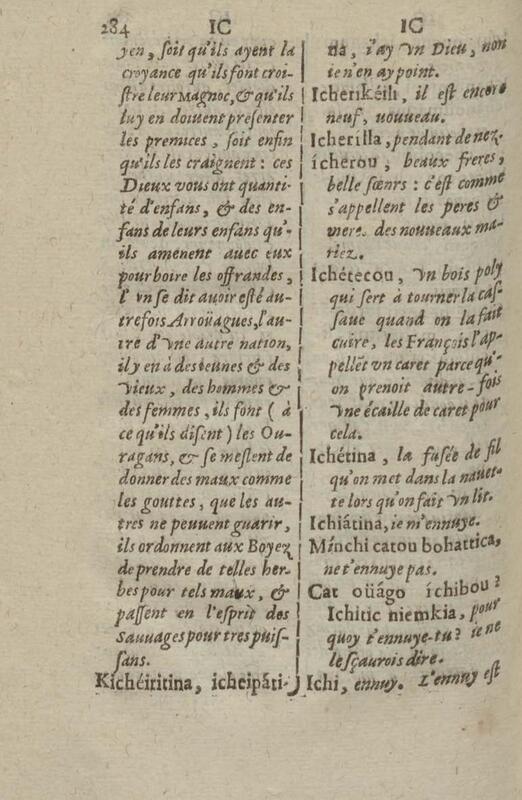 284 IC IC
yen, soit qu'ils ayent la
croyance qu'ils font croi-
stre leur Magnoc, & qu'ils
luy en doiuent presenter
les premices, soit enfin
qu'ils les craignent: ces
Dieux vous ont quanti-
té d'enfans, & des en-
fans de leurs enfans qu'-
ils amenent auec eux
pour boire les offrandes,
l'vn se dit auoir esté au-
trefois Arroüagues, l'au-
tre d'vne autre nation,
il y en à des ieunes & des
vieux, des hommes &
des femmes, ils font (à
ce qu'ils disent) les Ou-
ragans, & se meslent de
donner des maux comme
les gouttes, que les au-
tres ne peuuent guarir,
ils ordonnent aux Boyez
de prendre de telles her-
bes pour tels maux, &
passent en l'esprit des
Sauuages pour tres puis-
sans.
Kichéiritina, icheipáti-
na, i'ay vn Dieu, non
ie n'en ay point.
Icherikéili, il est encore
neuf, nouueau.
Icherilla, pendant de nez.
ícherou, beaux freres,
belle sœurs: c'est comme
s'appellent les peres &
meres des nouueaux ma-
riez.
Ichétecou, vn bois poly
qui sert à tourner la cas-
saue quand on la fait
cuire, les François l'ap-
pellẽt vn caret parce qu'-
on prenoit autre-fois
vne écaille de caret pour
cela.
Ichétina, la fusée de fil
qu'on met dans la nauet-
te lors qu'on fait vn lit.
Ichiátina, ie m'ennuye.
Mínchi catou bohattica,
ne t'ennuye pas.
Cat oüágo íchibou?
Ichitic niemkia, pour
quoy t'ennuye-tu? ie ne
le sçaurois dire.
Ichi, ennuy. L'ennuy est